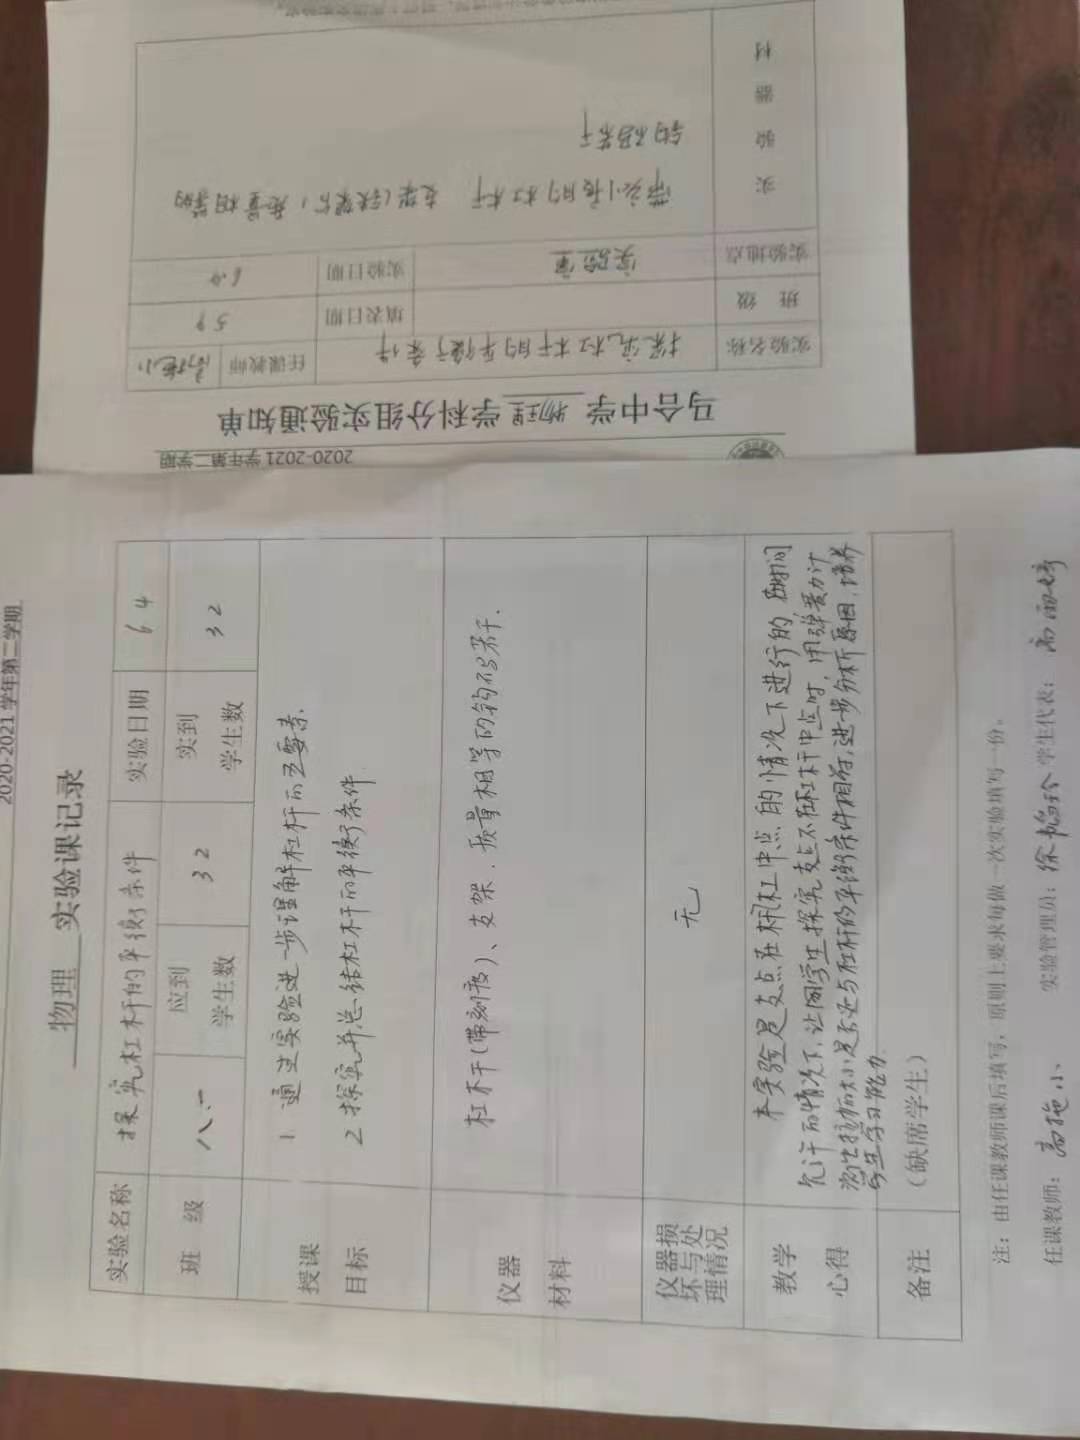 2020-2021 学年第二学期
马合中学 物理 学科分组实验通知单
实验名称 探究杠杆的平衡条件 任课教师 高拖小
班 级 填表日期 5.9
实验地点 实验室 实验日期 6.4
实 验 器 材 带刻度的杠杆 支架(铁架台) 质量相等的
钩码若干
2020-2021 学年第二学期
物理 实验课记录
实验名称 探究杠杆的平衡条件 实验日期 6 4
班 级 八.一 应到学生数 32 实到学生数 32
授课目标 1 通过实验进一步理解杠杆的五要素.
2 探究并总结杠杆的平衡条件
仪器材料 杠杆(带刻度)、支架.质量相等的钩码若干.
仪器损坏与处理情况 无
教学心得 本实验是支点在杠杆中点的情况下进行的,时间
允许的情况下,让同学生探究支点不在杠杆中点时,用弹簧力计
大小是否还与杠杆的平衡条件相符,进步分析原因,培养
学生学习能力.
备注 (缺席学生)
注:由任课教师课后填写,原则上要求每做一次实验填写一份。
任课教师:高拖小 实验管理员:徐 学生代表:高